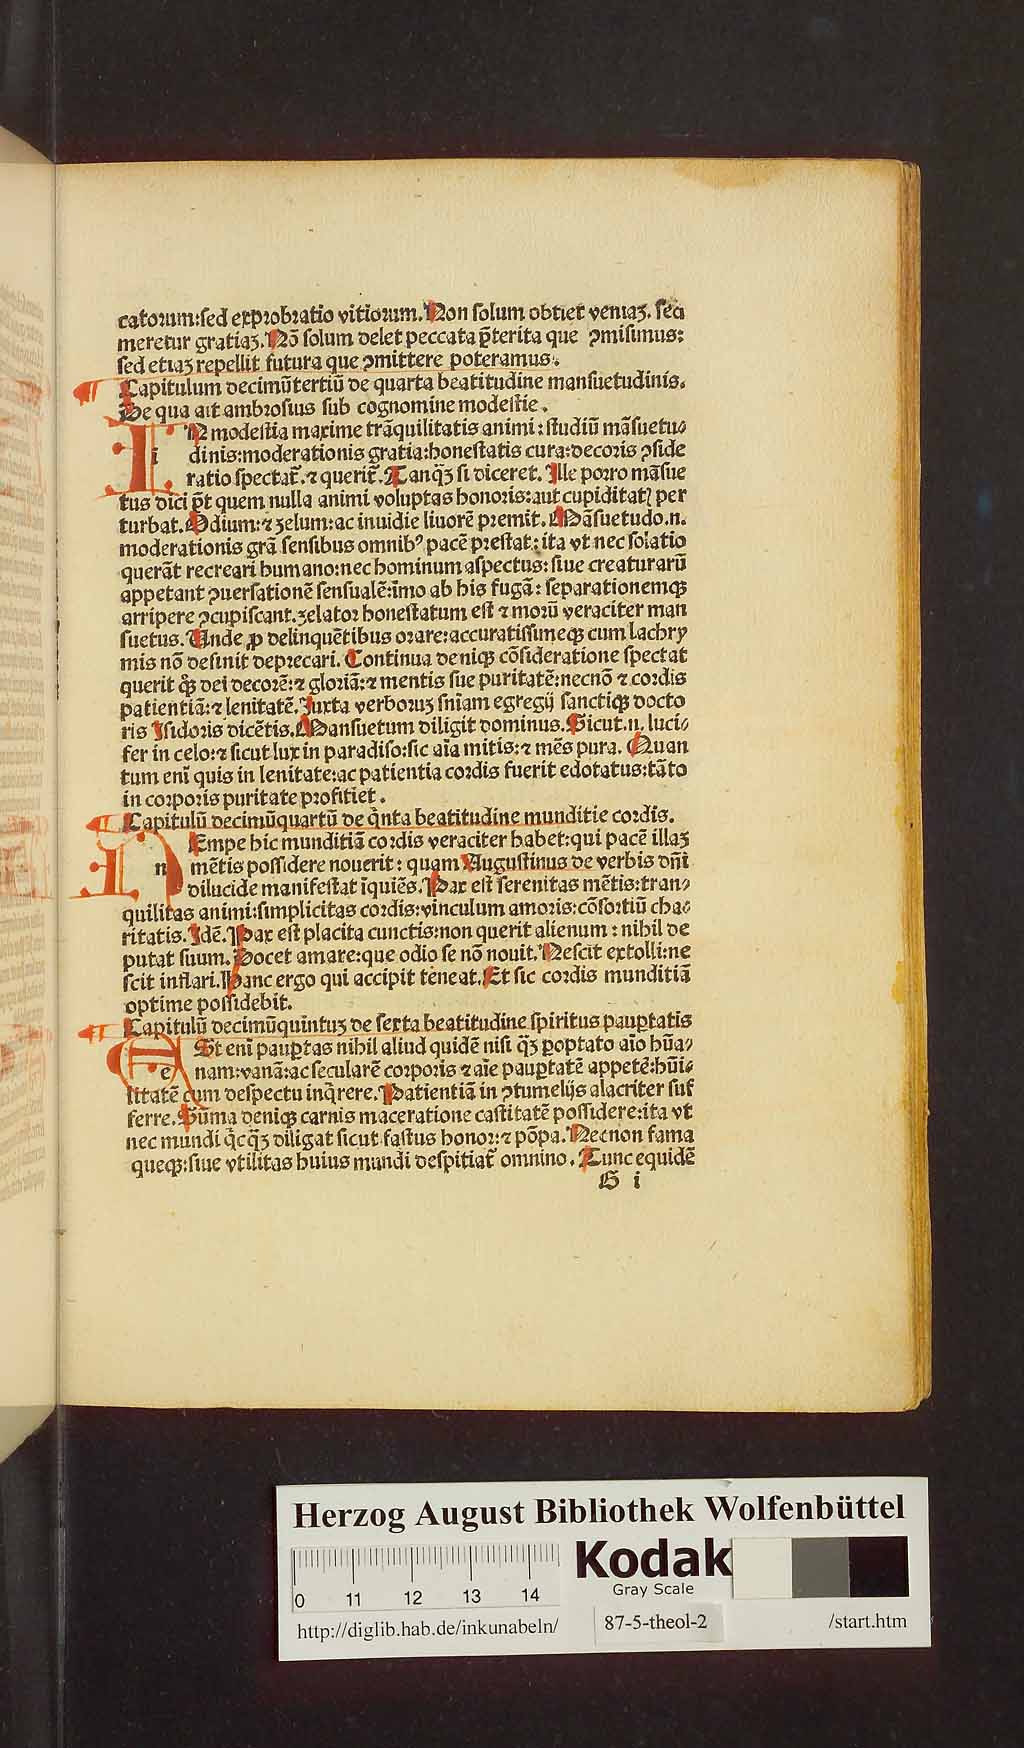 catorum:sed exprobratio vitiorum. Non solum obtiet veniaʒ. sed
meretur gratiaʒ. Nō solum delet peccata p̄terita que ꝯmisimus:
sed etiaʒ repellit futura que ꝯmittere poteramus.
Capitulum decimūtertiū de quarta beatitudine mansuetudinis.
De qua ait ambrosius sub cognomine modestie.
IN modestia maxime trāquilitatis animi: studiū māsuetu⸗
i dinis:moderationis gratia:honestatis cura:decoris ꝯside
ratio spectat᷑. ⁊ querit᷑. Tanq̄ʒ si diceret. Ille porro māsue
tus dici pōt quem nulla animi voluptas honoris:aut cupiditatꝭ per
turbat. Odium:⁊ zelum:ac inuidie liuorē premit. Māsuetudo.n.
moderationis grā sensibus omnibꝰ pacē prestat: ita vt nec solatio
querāt recreari humano:nec hominum aspectus: siue creaturarū
appetant ꝯuersationē sensualē:īmo ab his fugā: separationemqꝫ
arripere ꝯcupiscant. zelator honestatum est ⁊ morū veraciter man
suetus. Unde ꝓ delinquētibus orare:accuratissimeqꝫ cum lachry
mis nō desinit deprecari. Continua deniqꝫ cōsideratione spectat
querit qꝫ dei decorē:⁊ gloriā:⁊ mentis sue puritatē:necnō ⁊ cordis
patientiā:⁊ lenitatē. Iuxta verboruʒ sniam egregij sanctiqꝫ docto
ris Isidoris dicētis. Mansuetum diligit dominus. Sicut.n. luci⸗
fer in celo:⁊ sicut lux in paradiso:sic aīa mitis:⁊ mēs pura. Quan
tum enī quis in lenitate:ac patientia cordis fuerit edotatus:tāto
in corporis puritate profitiet.
Capitulū decimūquartū de q̄nta beatitudine munditie cordis.
NEmpe hic munditiā cordis veraciter habet:qui pacē illaʒ
n mētis possidere nouerit: quam Augustinus de verbis dn̄i
dilucide manifestat īquiēs. Pax est serenitas mētis:tran⸗
quilitas animi:simplicitas cordis:vinculum amoris:cōsortiū cha⸗
ritatis. Idē. Pax est placita cunctis:non querit alienum: nihil de
putat suum. Docet amare:que odio se nō nouit. Nescit extolli:ne
scit inflari. Hanc ergo qui accipit teneat. Et sic cordis munditiā
optime possidebit.
Capitulū decimūquintuʒ de sexta beatitudine spiritus paup̲tatis
ESt enī paup̲tas nihil aliud quidē nisi q̄ʒ p̲optato aīo hūa⸗
e nam:vanā:ac secularē corporis ⁊ aīe paup̲tatē appetē:hūi⸗
litatē cum despectu inq̄rere. Patientiā in ꝯtumelijs alacriter suf
ferre. Suma deniqꝫ carnis maceratione castitatē possidere:ita vt
nec mundi q̄cq̄ʒ diligat sicut fastus honor:⁊ pōpa. Necnon fama
queqꝫ:siue vtilitas huius mundi despitiat᷑ omnino. Tunc equidē
G i
Herzog August Bibliothek Wolfenbüttel
Kodak
Gray Scale
0 11 12 13 14
http://diglib.hab.de/inkunabeln/ 87-5-theol-2 /start.htm